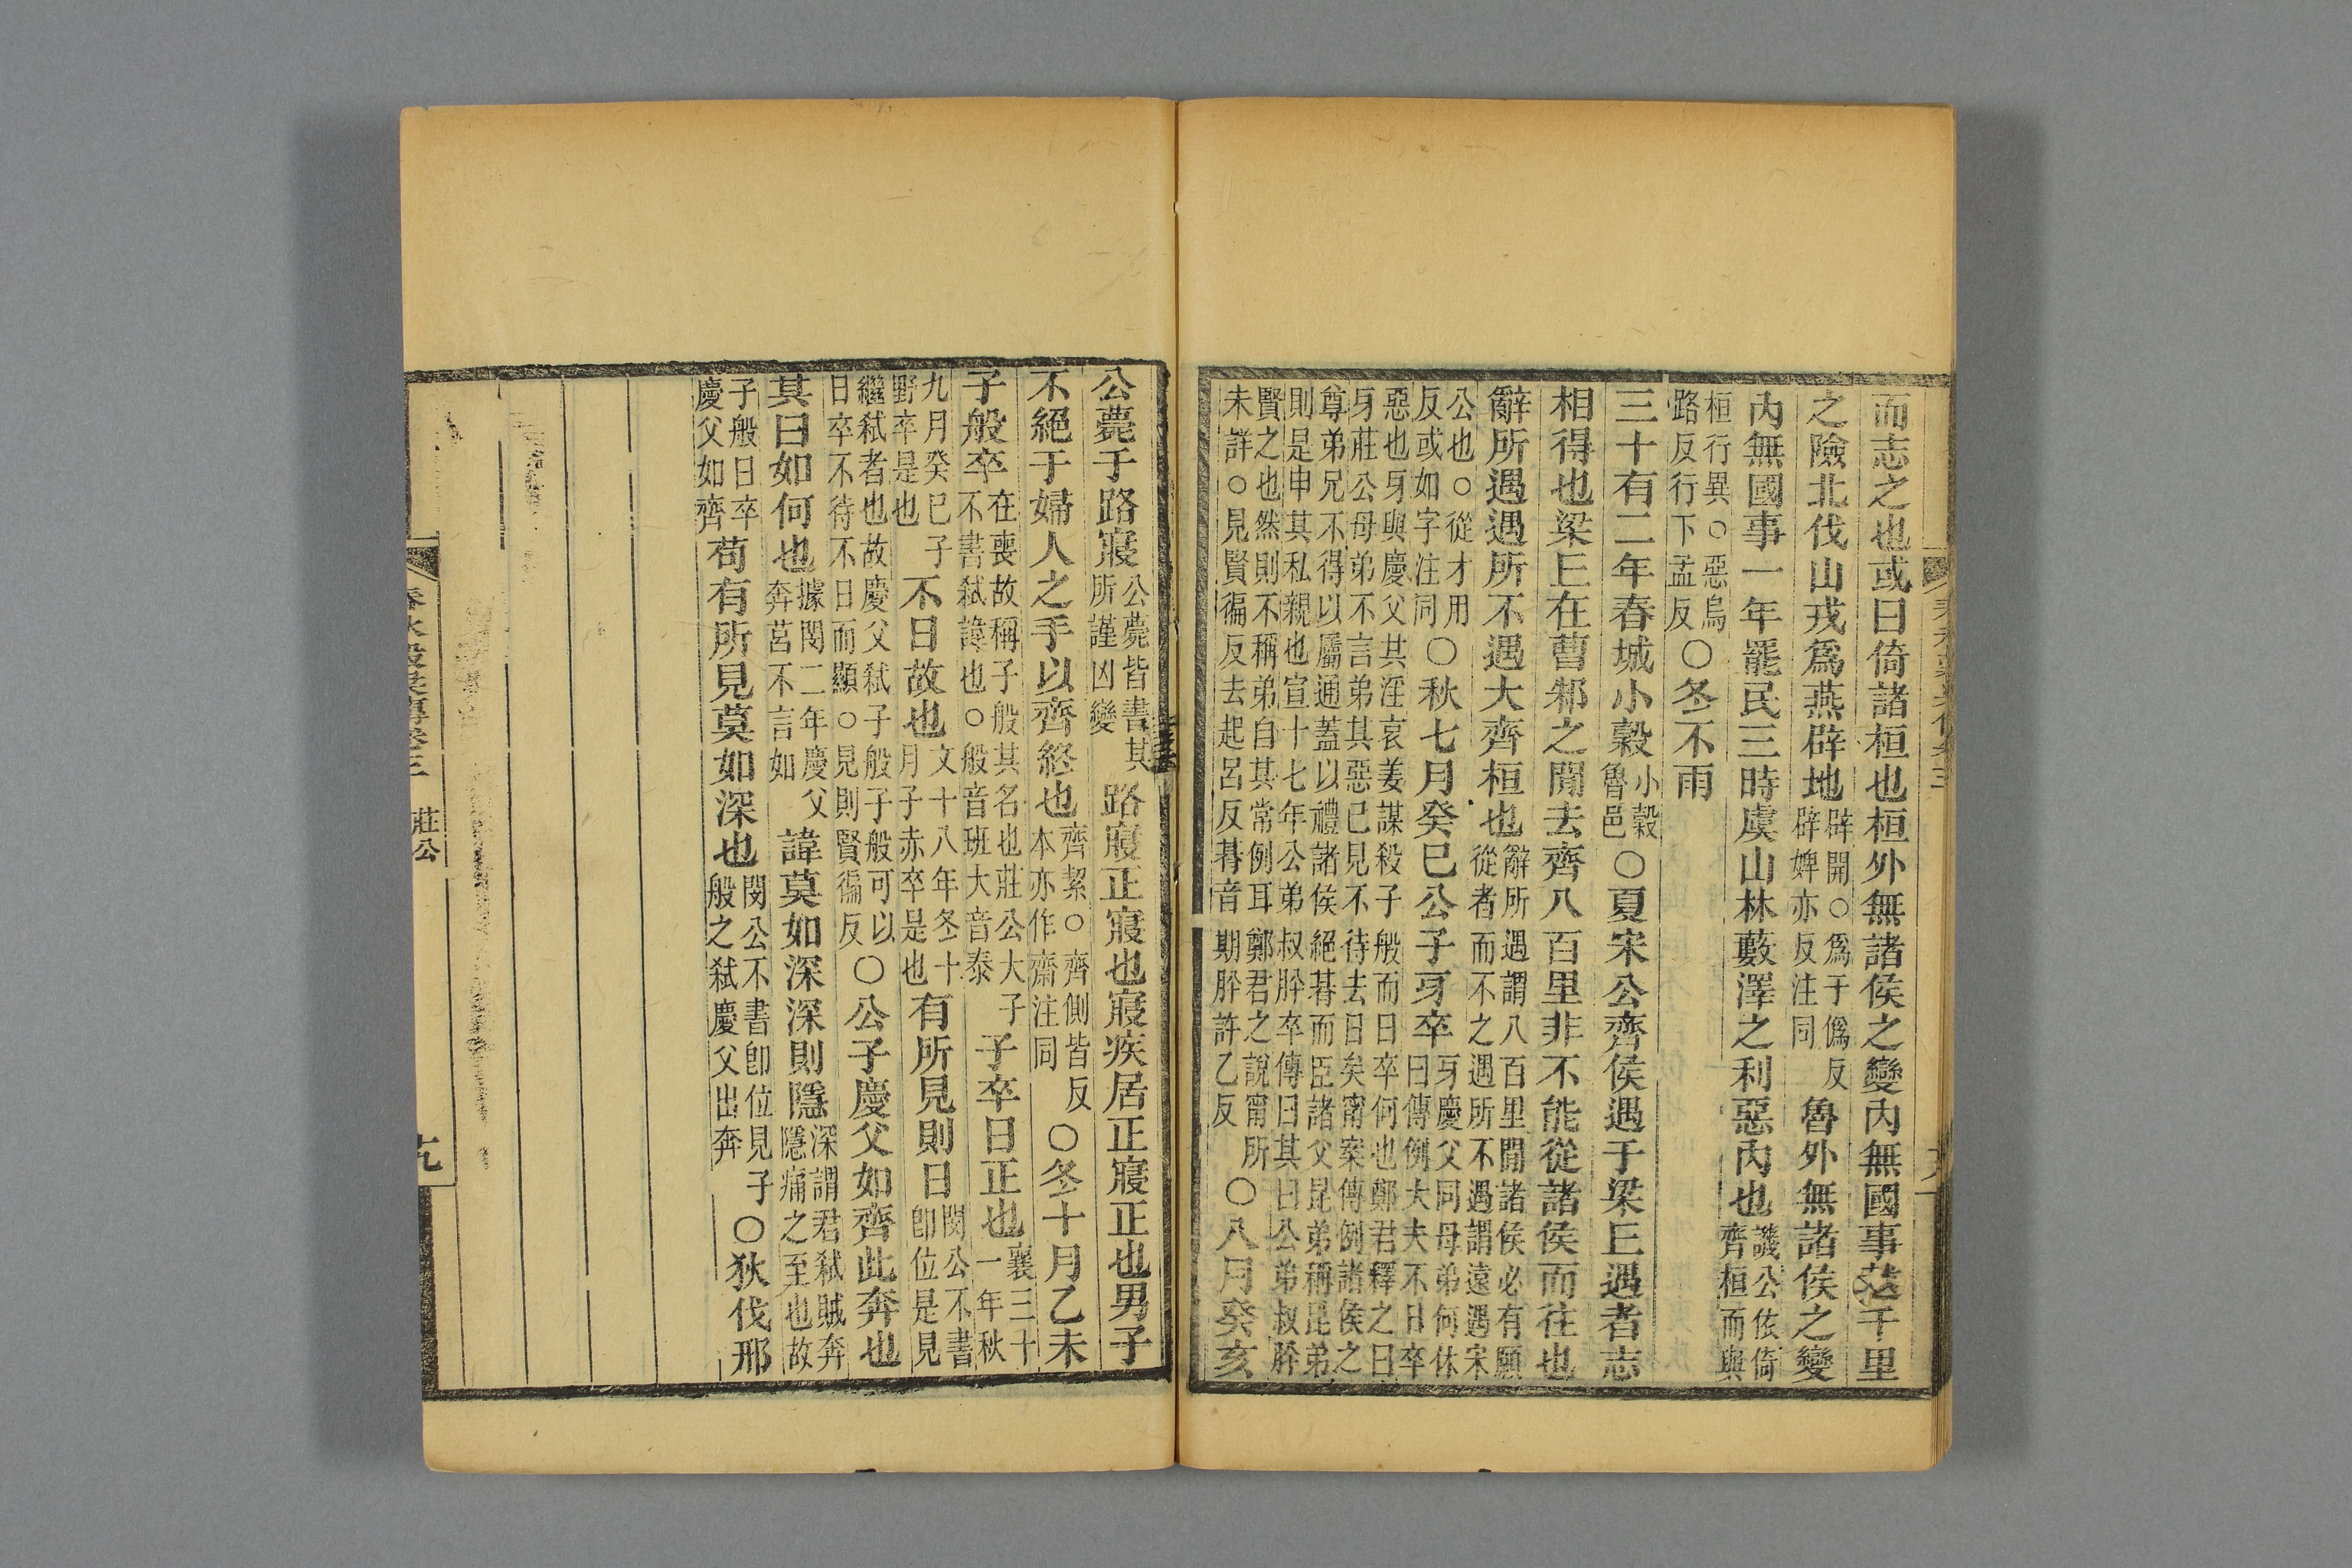 而志之也或曰倚諸桓也桓外無諸侯之變內無國事越千里
之險北伐山戎爲燕辟地辟開○爲于僞反辟婢亦反注同魯外無諸侯之變
內無國事一年罷民三時虞山林藪澤之利惡內也譏公依倚齊桓而與
桓行異○惡烏路反行下孟反○冬不雨
三十有二年春城小穀小穀魯邑○夏宋公齊侯遇于梁丘遇者志
相得也梁丘在曹邾之閒去齊八百里非不能從諸侯而往也
辭所遇遇所不遇大齊桓也辭所遇謂八百里閒諸侯必有願從者而不之遇所不遇謂遠遇宋
公也○從才用反或如字注同○秋七月癸巳公子牙卒牙慶父同母弟何休曰傳例大夫不日卒
惡也牙與慶父共淫哀姜謀殺子般而日卒何也鄭君釋之曰牙莊公母弟不言弟其惡已見不待去日矣甯案傳例諸侯之
尊弟兄不得以屬通蓋以禮諸侯絕朞而臣諸父昆弟稱昆弟則是申其私親也宣十七年公弟叔肸卒傳曰其曰公弟叔肸
賢之也然則不稱弟自其常例耳鄭君之說甯所未詳○見賢徧反去起呂反朞音期肸許乙反○八月癸亥
公薨于路寢公薨皆書其所謹凶變路寢正寢也寢疾居正寢正也男子
不絕于婦人之手以齊終也齊絜○齊側皆反本亦作齋注同○冬十月乙未
子般卒在喪故稱子般其名也莊公大子不書弒諱也○般音班大音泰子卒日正也襄三十一年秋
九月癸巳子野卒是也不日故也文十八年冬十月子赤卒是也有所見則日閔公不書卽位是見
繼弒者也故慶父弒子般子般可以日卒不待不日而顯○見則賢徧反○公子慶父如齊此奔也
其曰如何也據閔二年慶父奔莒不言如諱莫如深深則隱深謂君弒賊奔隱痛之至也故
子般日卒慶父如齊苟有所見莫如深也閔公不書卽位見子般之弒慶父出奔○狄伐邢
春秋穀梁傳卷三
莊公